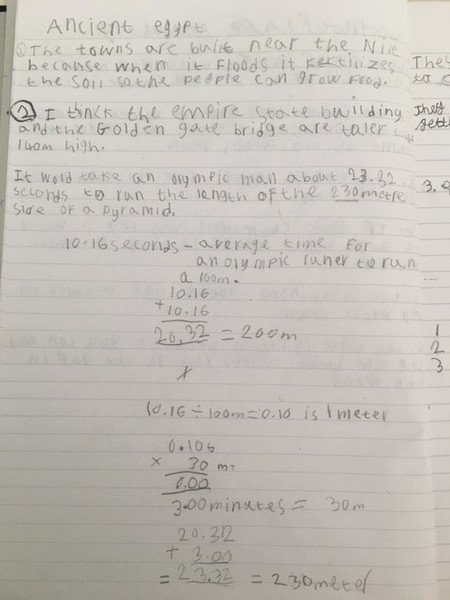 Ancient egypt
① The towns are built near the Nile
because when it floods it fertilizes
the soil so the people can grow food.
② I think the empire state building
and the Golden gate bridge are taler
140m high.
It wold take an olympic man about 23.32
seconds to run the length of the 230 metre
side of a Pyramid.
10.16 seconds - average time for
an olympic runer to run
a 100m.
10.16
+ 10.16
20.32 = 200m
10.16 ÷ 100m = 0.10 is 1 meter
0.10s
× 30 m
0.00
3.00 minutes = 30m
20.32
+ 3.00
= 23.32 = 230 meter
They
to
they
gett
3.
1
2
3